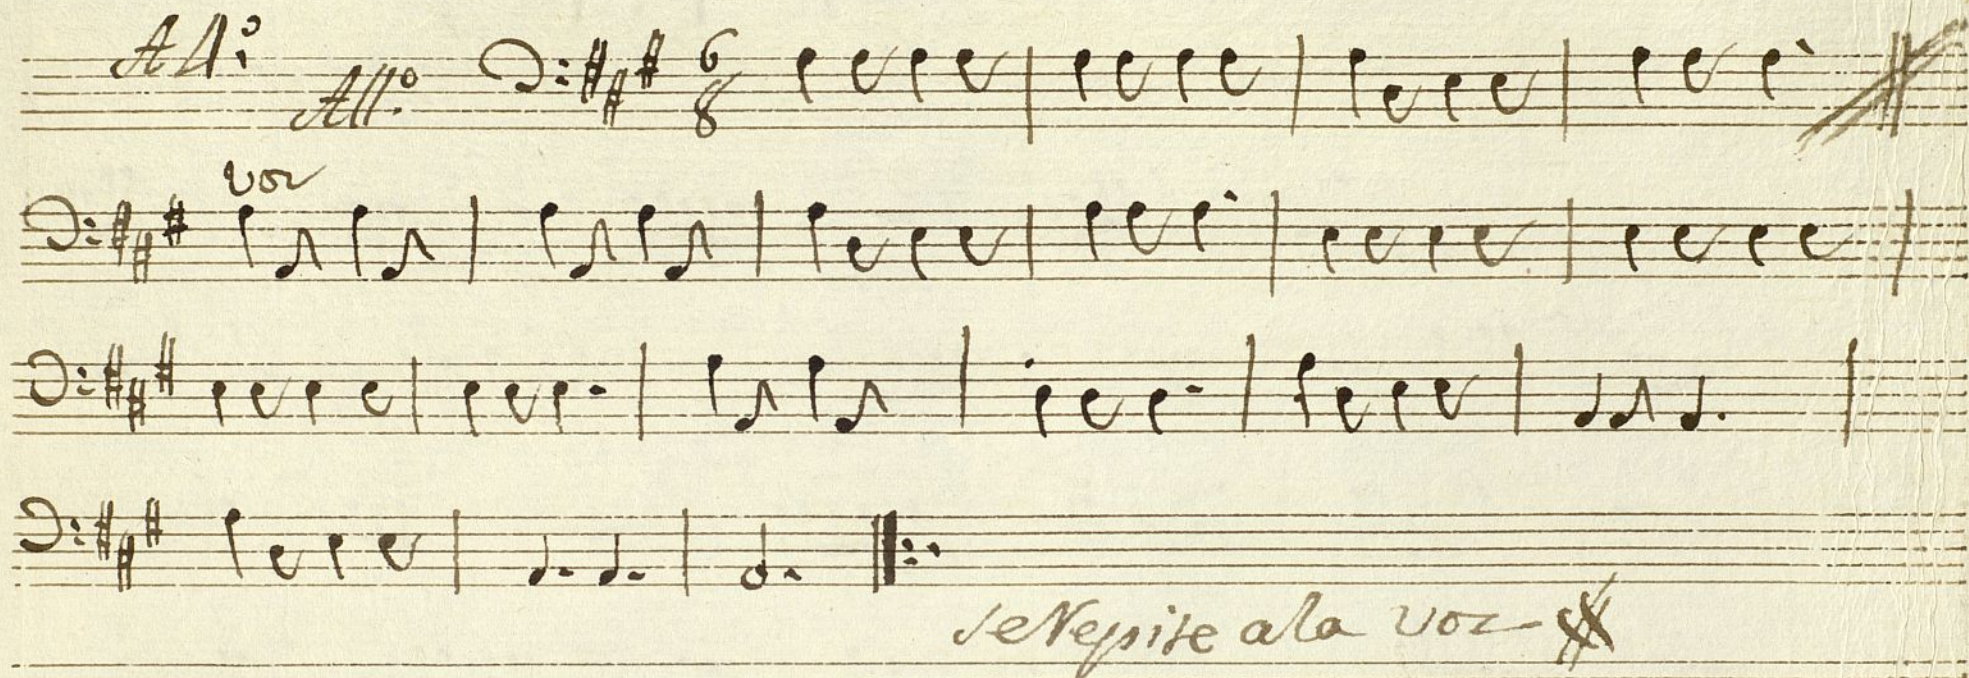 Al 4:º
All.º 6 8
voz
se Repite a la voz